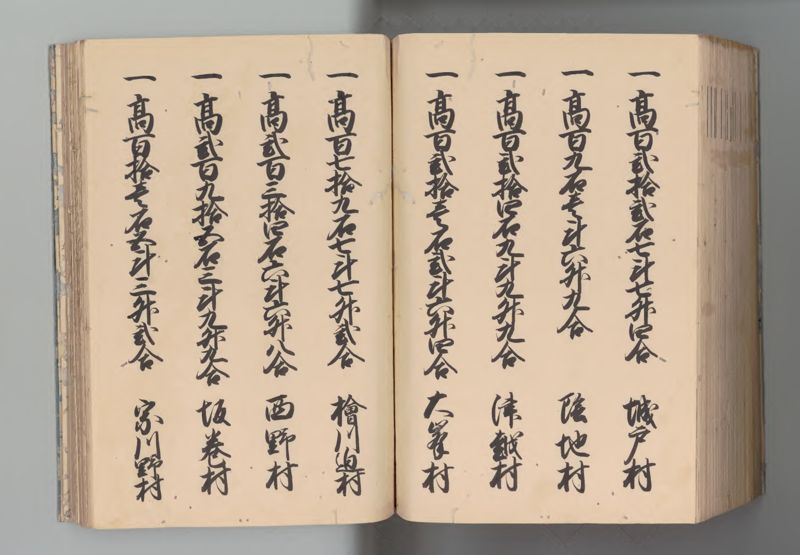 一 高百弐拾弐石七斗七升四合 城戸村
一 高百九石壱斗六升九合 陰地村
一 高百弐拾四石九斗九升九合 津越村
一 高百弐拾壱石弐斗六升四合 大峯村
一 高百七拾九石七斗七升弐合 檜川迫村
一 高弐百三拾四石六斗六升八合 西野村
一 高弐百九拾五石三斗九升九合 坂巻村
一 高百拾壱石五斗三升弐合 宗川野村